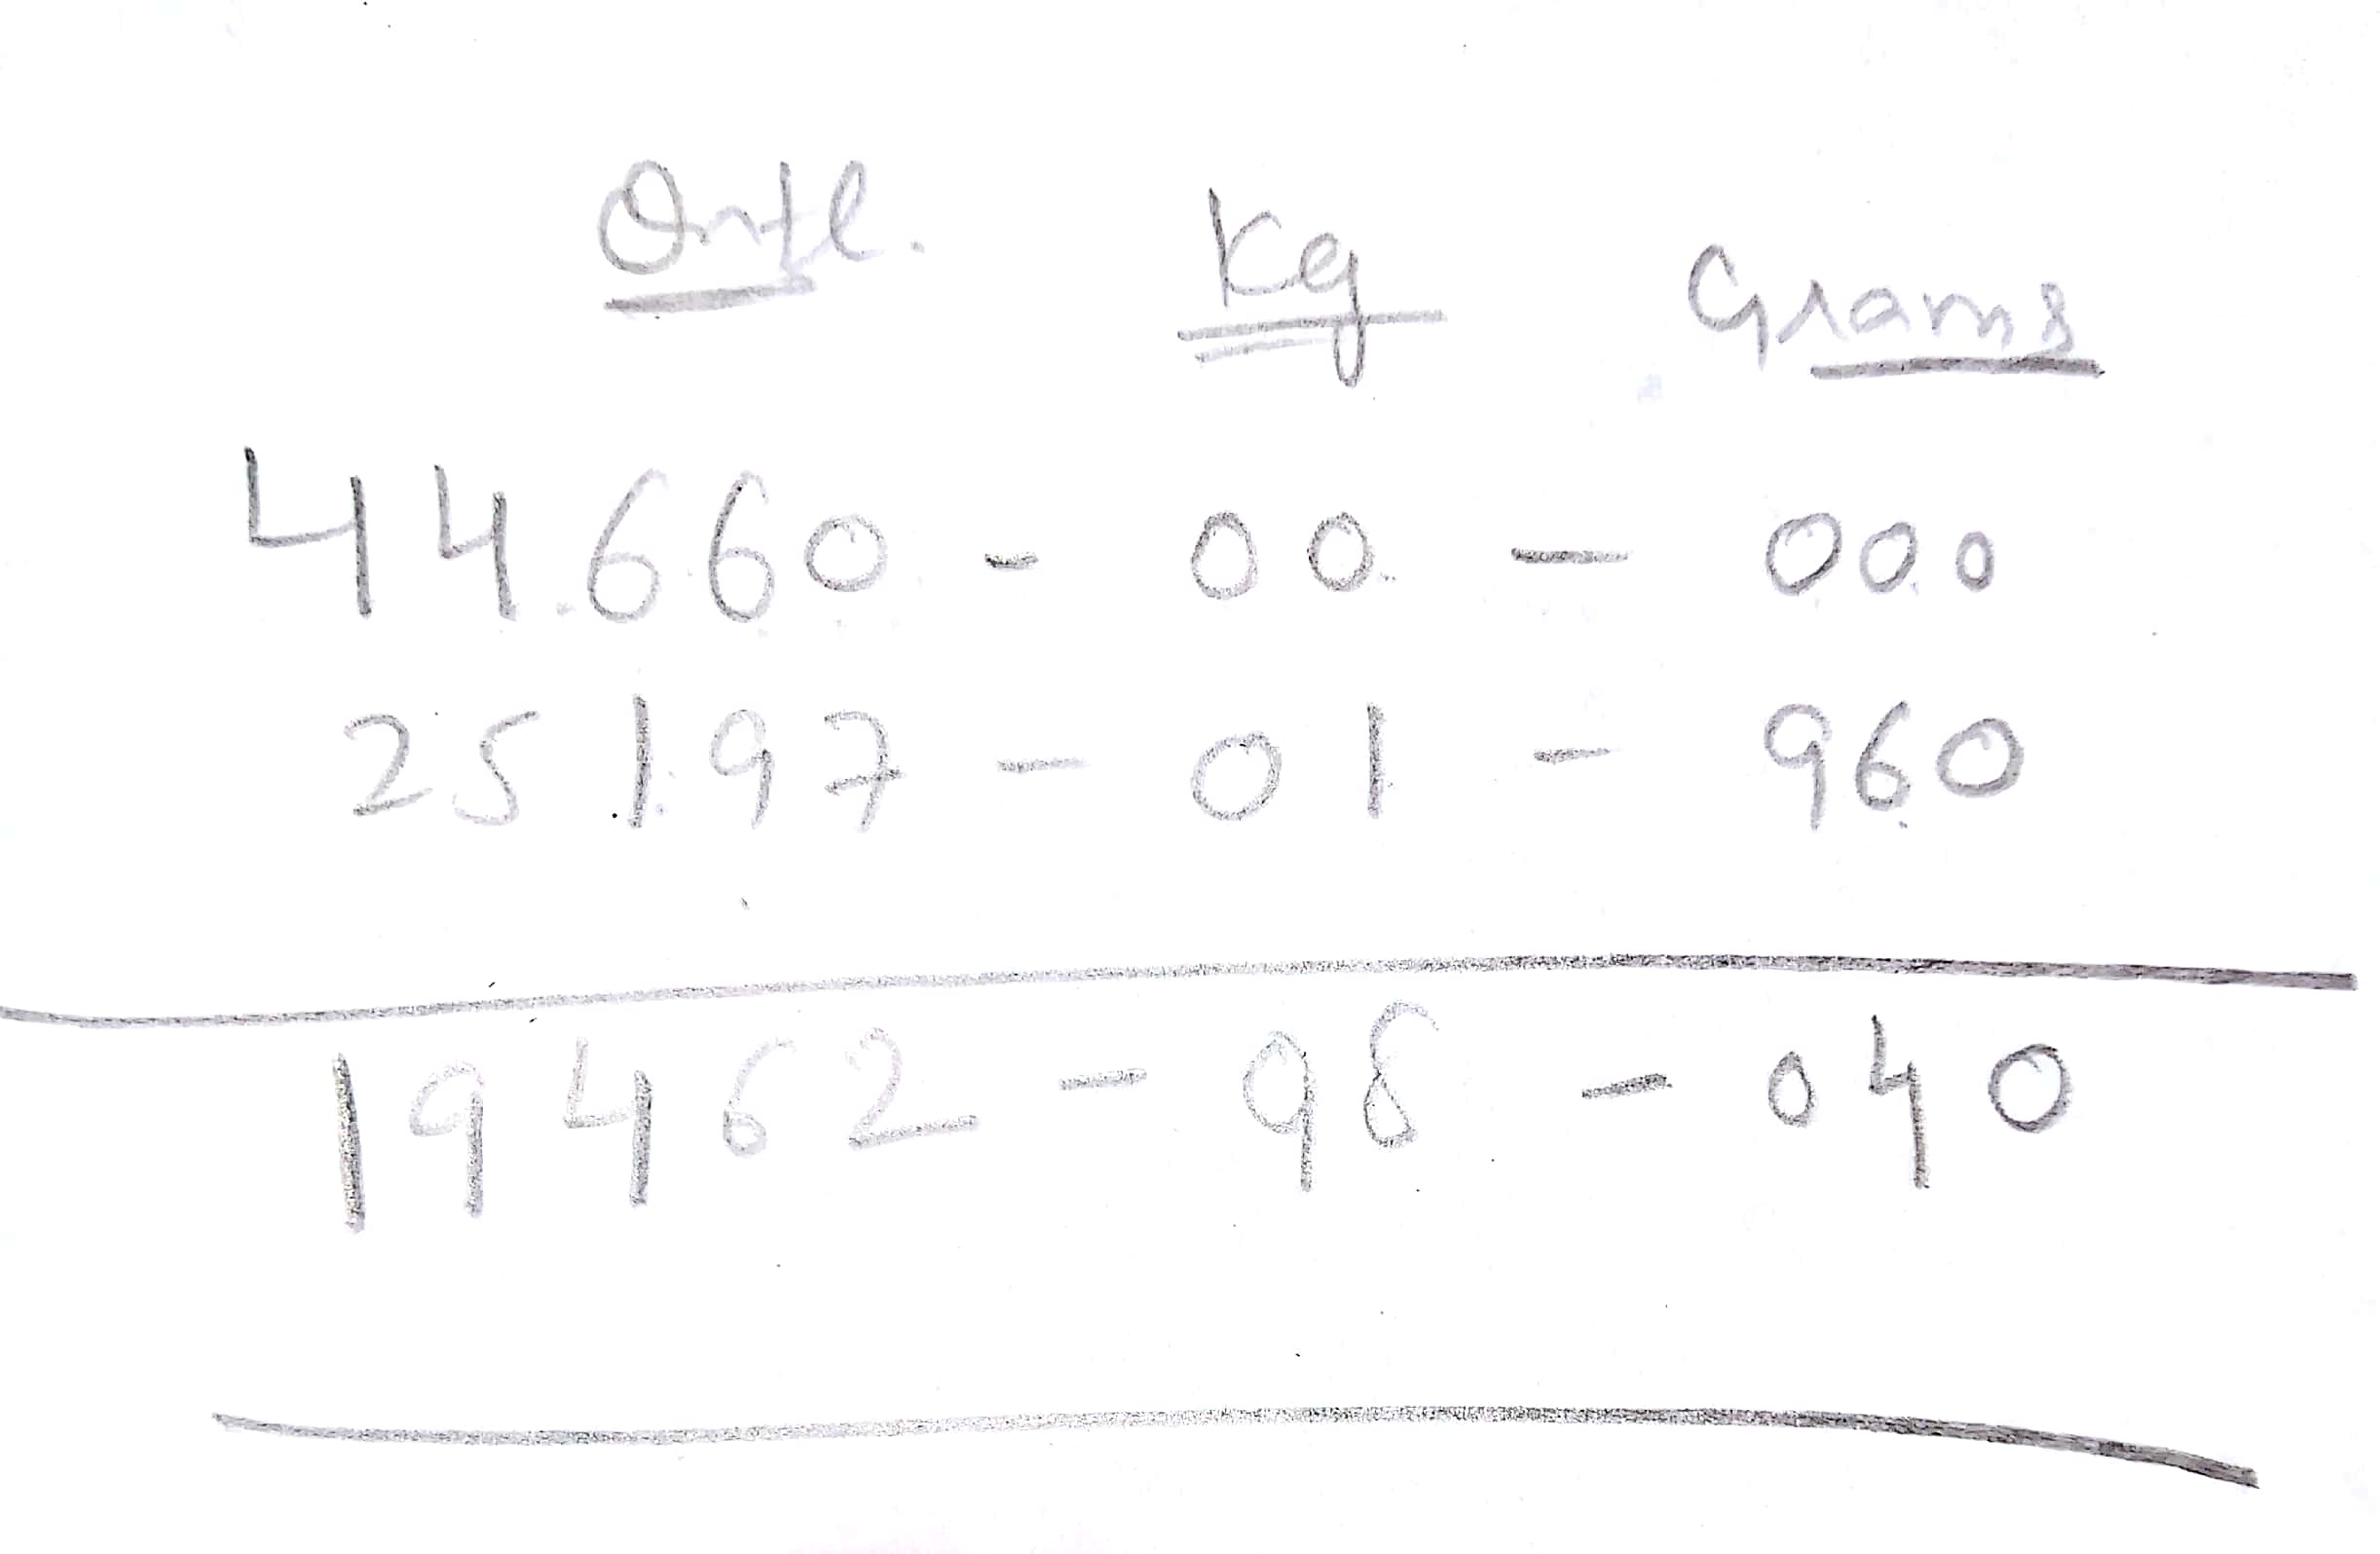 Qntl. Kg Grams
44660 - 00 - 000
25197 - 01 - 960
19462 - 98 - 040